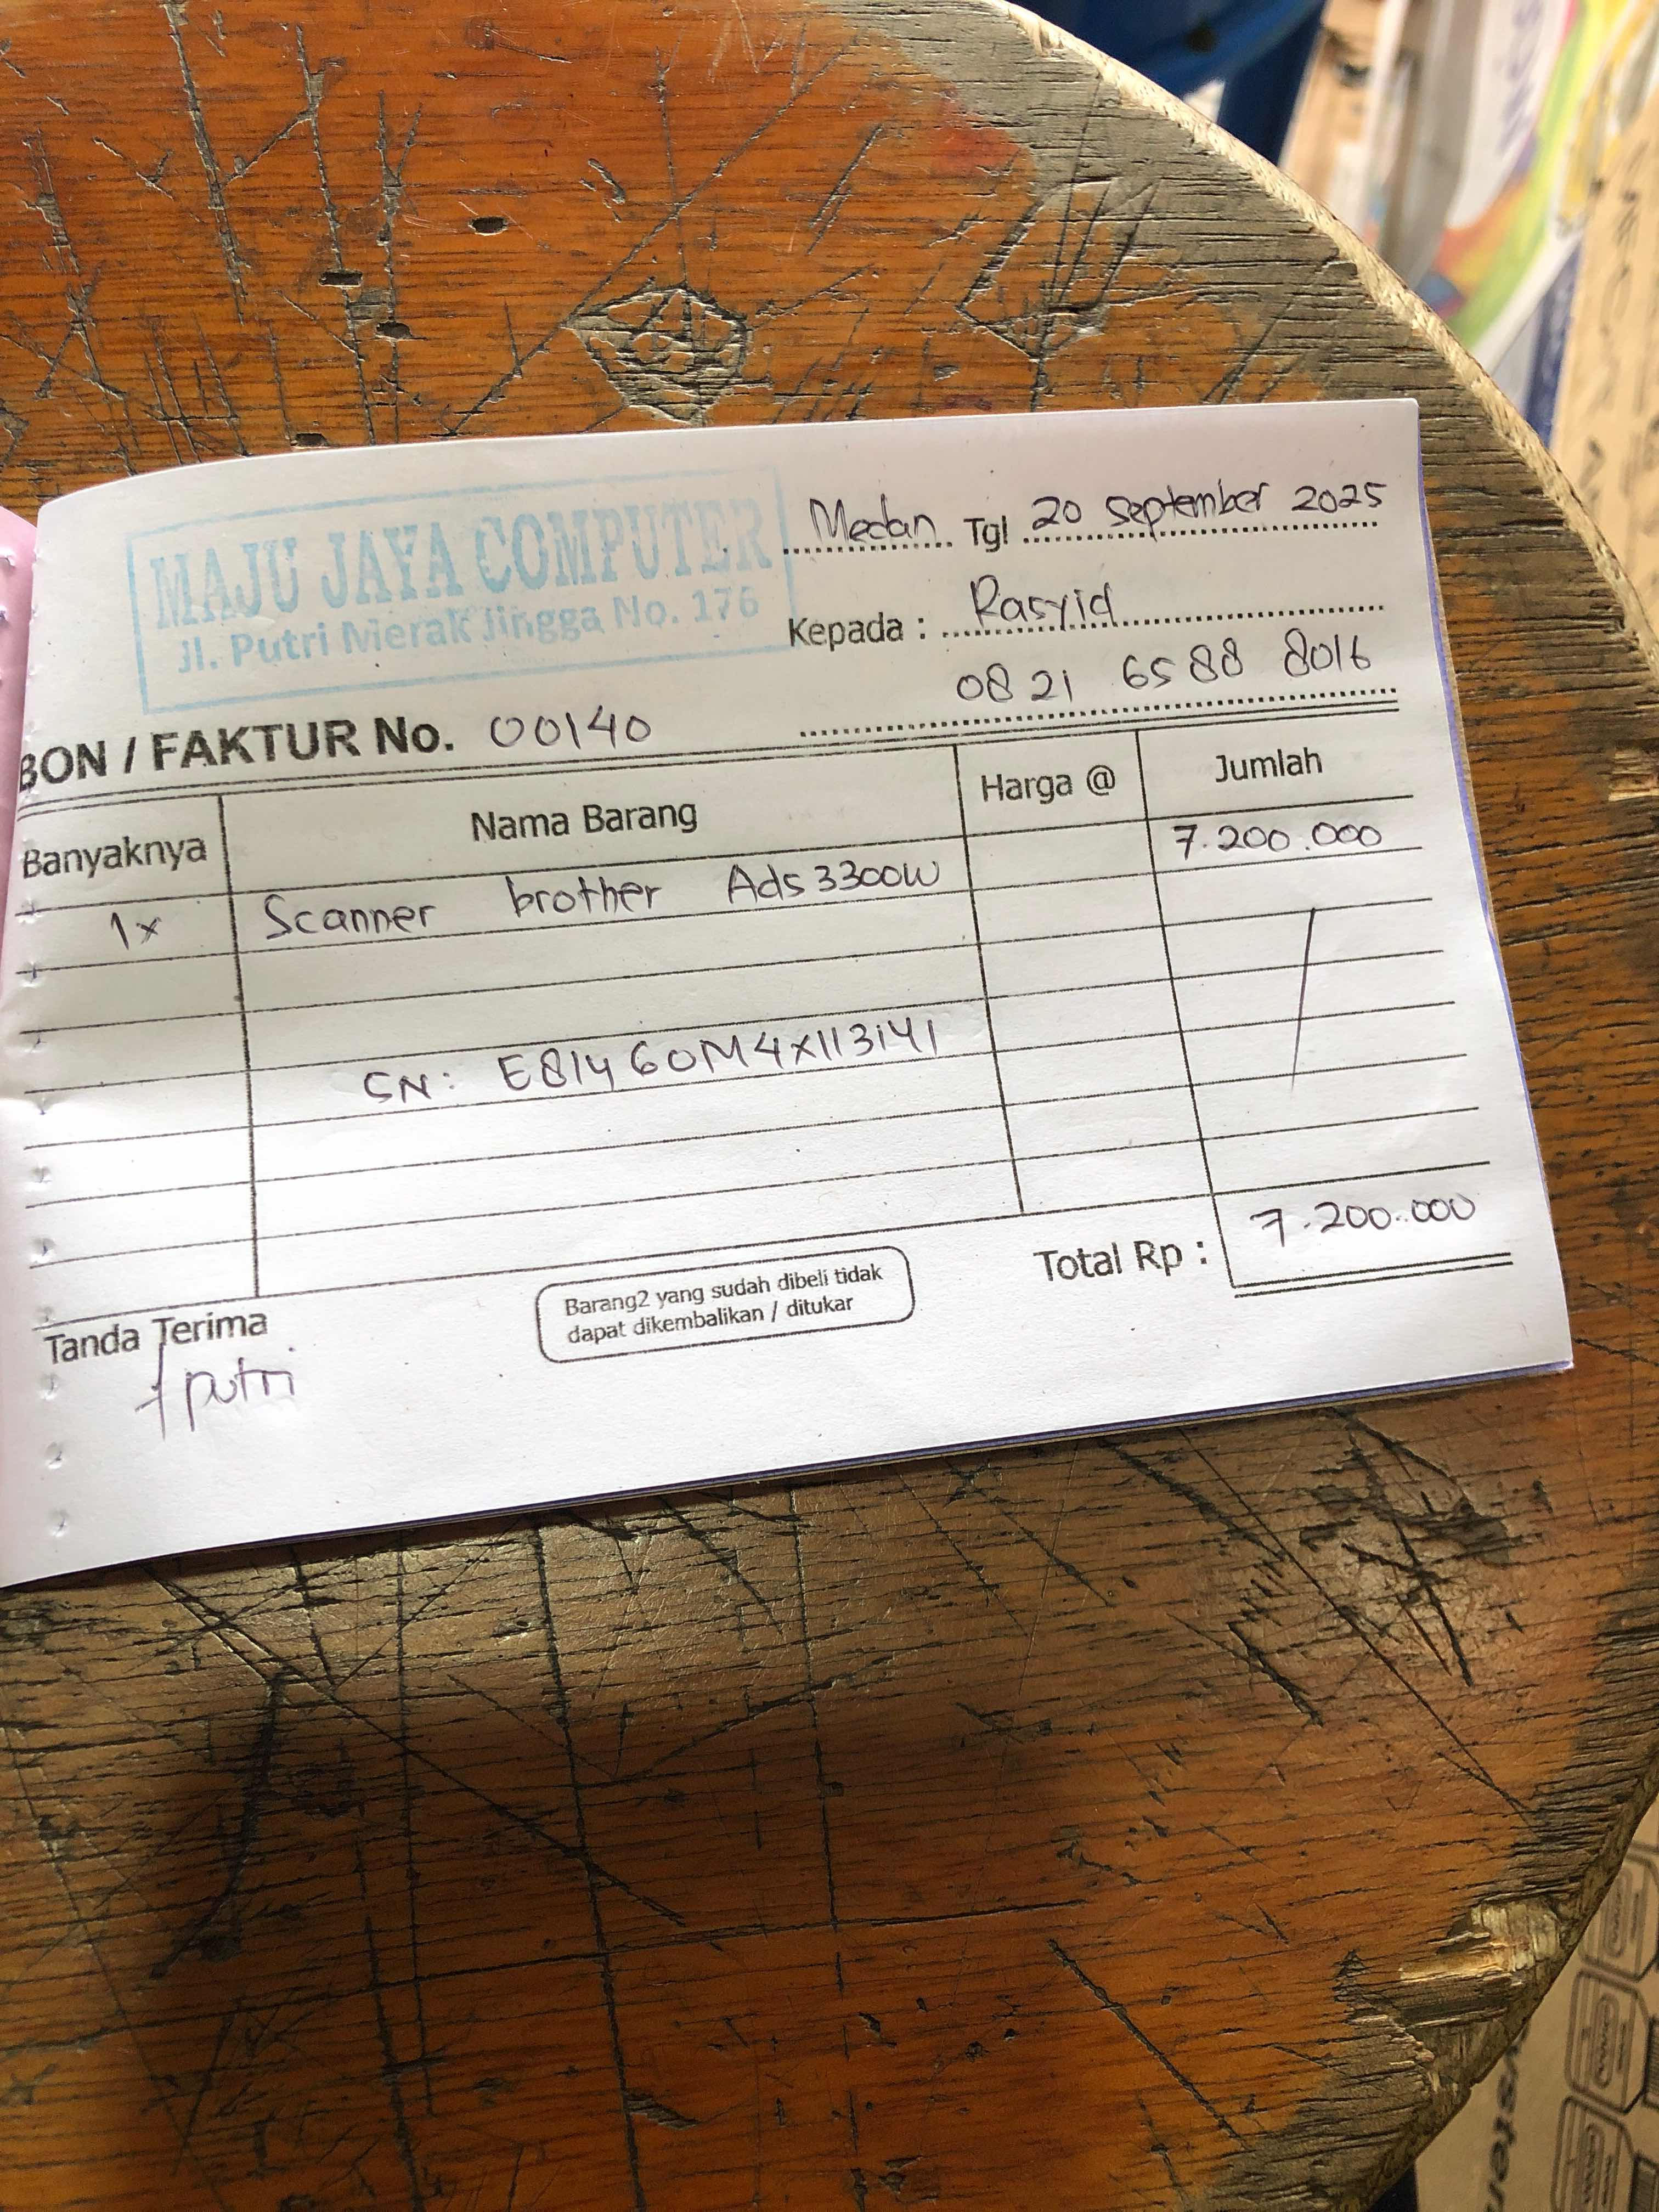 MAJU JAYA COMPUTER
Jl. Putri Merak Jingga No. 176
Medan Tgl 20 September 2025
Kepada : Rasyid
0821 6588 8016
BON / FAKTUR No. 00140
Banyaknya Nama Barang Harga @ Jumlah
1x Scanner brother Ads3300W 7.200.000
SN: E81460M4X113141
Total Rp : 7.200.000
Tanda Terima
Barang2 yang sudah dibeli tidak
dapat dikembalikan / ditukar
putri